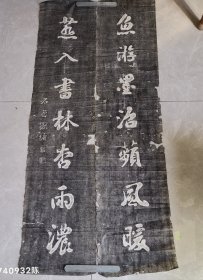 魚游墨沼蘋風暖
燕入書林杏雨濃
740932陈